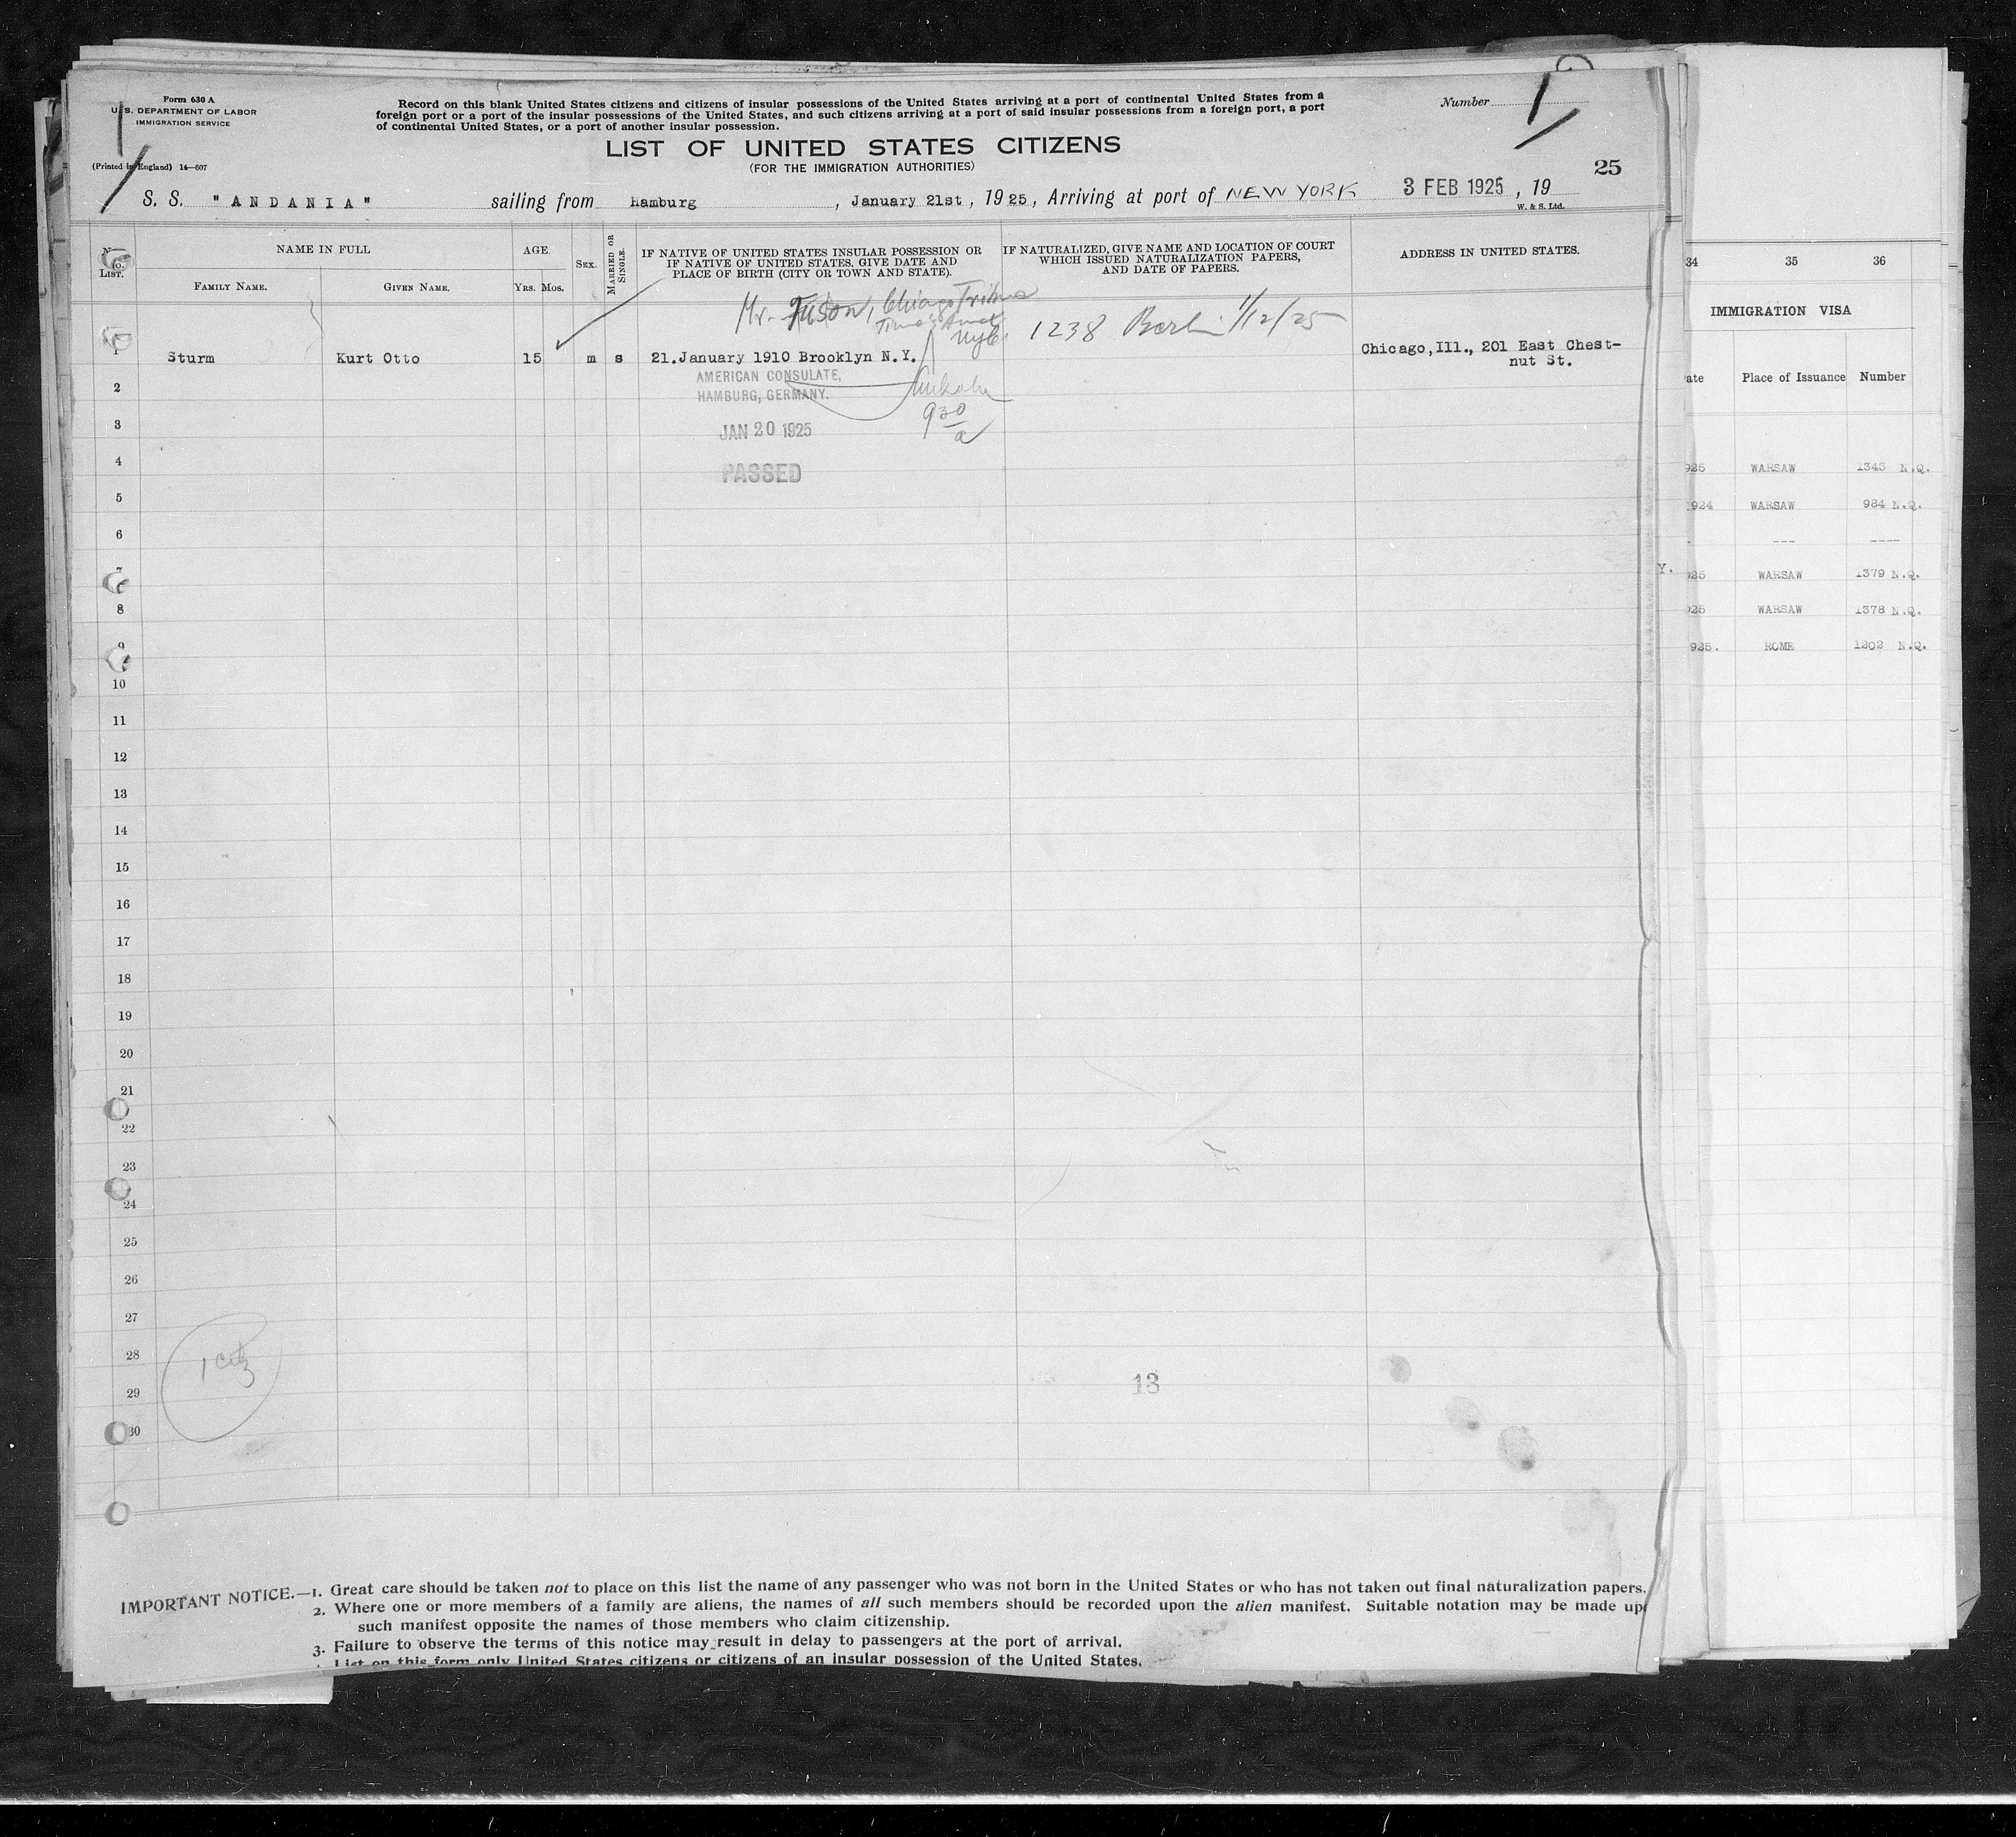 Form 630 A
U. S. DEPARTMENT OF LABOR
IMMIGRATION SERVICE
(Printed in England) 14—607
Record on this blank United States citizens and citizens of insular possessions of the United States arriving at a port of continental United States from a
foreign port or a port of the insular possessions of the United States, and such citizens arriving at a port of said insular possessions from a foreign port, a port
of continental United States, or a port of another insular possession.
Number 1
LIST OF UNITED STATES CITIZENS
(FOR THE IMMIGRATION AUTHORITIES)
25
S. S. "ANDANIA" sailing from Hamburg, January 21st, 1925, Arriving at port of NEW YORK 3 FEB 1925, 19
W. & S. Ltd.
No. LIST.
NAME IN FULL
FAMILY NAME. GIVEN NAME.
AGE.
YRS. MOS.
SEX.
MARRIED OR SINGLE.
IF NATIVE OF UNITED STATES INSULAR POSSESSION OR
IF NATIVE OF UNITED STATES, GIVE DATE AND
PLACE OF BIRTH (CITY OR TOWN AND STATE).
IF NATURALIZED, GIVE NAME AND LOCATION OF COURT
WHICH ISSUED NATURALIZATION PAPERS,
AND DATE OF PAPERS.
ADDRESS IN UNITED STATES.
Mr. Chicago
1238 Berlin 1/12/25
1 Sturm Kurt Otto 15 m s 21.January 1910 Brooklyn N.Y. Chicago,Ill., 201 East Chest-
nut St.
AMERICAN CONSULATE,
HAMBURG, GERMANY.
JAN 20 1925
930
a
PASSED
2
3
4
5
6
7
8
9
10
11
12
13
14
15
16
17
18
19
20
21
22
23
24
25
26
27
28
29
30
13
IMPORTANT NOTICE.—1. Great care should be taken not to place on this list the name of any passenger who was not born in the United States or who has not taken out final naturalization papers.
2. Where one or more members of a family are aliens, the names of all such members should be recorded upon the alien manifest. Suitable notation may be made up
such manifest opposite the names of those members who claim citizenship.
3. Failure to observe the terms of this notice may result in delay to passengers at the port of arrival.
List on this form only United States citizens or citizens of an insular possession of the United States.
34 35 36
IMMIGRATION VISA
ate Place of Issuance Number
925 WARSAW 1343 N.Q.
1924 WARSAW 984 N.Q.
- --- ----
Y. 925 WARSAW 1379 N.Q.
925 WARSAW 1378 N.Q.
925. ROME 1202 N.Q.